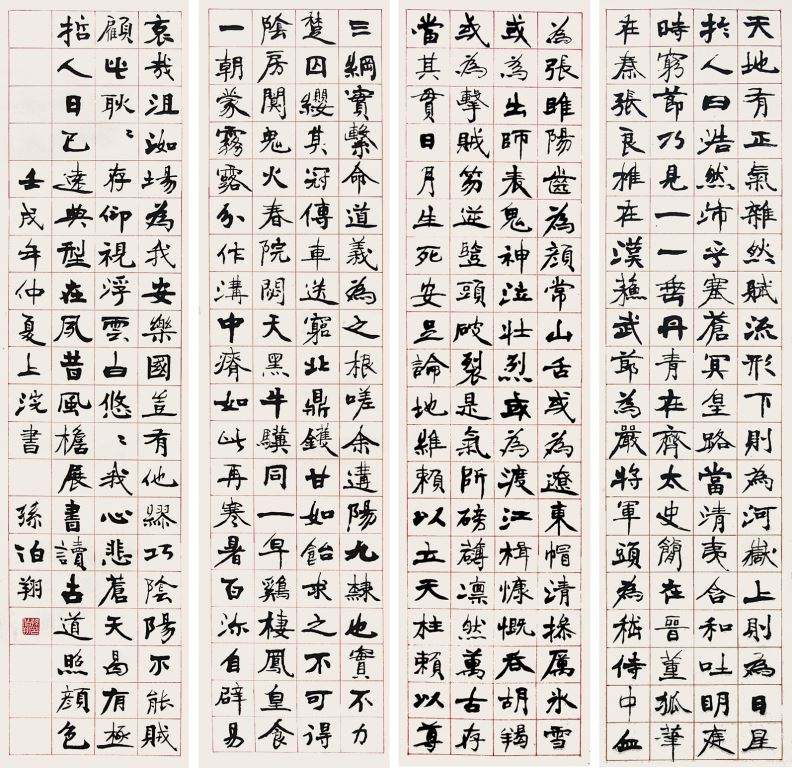 天地有正氣雜然賦流形下則為河嶽上則為日星
於人曰浩然沛乎塞蒼冥皇路當清夷含和吐明庭
時窮節乃見一一垂丹青在齊太史簡在晉董狐筆
在秦張良椎在漢蘇武節為嚴將軍頭為嵇侍中血
為張睢陽齒為顏常山舌或為遼東帽清操厲冰雪
或為出師表鬼神泣壯烈或為渡江楫慷慨吞胡羯
或為擊賊笏逆豎頭破裂是氣所磅礴凜然萬古存
當其貫日月生死安足論地維賴以立天柱賴以尊
三綱實繫命道義為之根嗟余遘陽九隸也實不力
楚囚纓其冠傳車送窮北鼎鑊甘如飴求之不可得
陰房闃鬼火春院閟天黑牛驥同一皁鷄棲鳳皇食
一朝蒙霧露分作溝中瘠如此再寒暑百沴自辟易
哀哉沮洳場為我安樂國豈有他繆巧陰陽不能賊
顧此耿〻存仰視浮雲白悠〻我心悲蒼天曷有極
哲人日已遠典型在夙昔風檐展書讀古道照顏色
壬戌年仲夏上浣書 孫泊翔